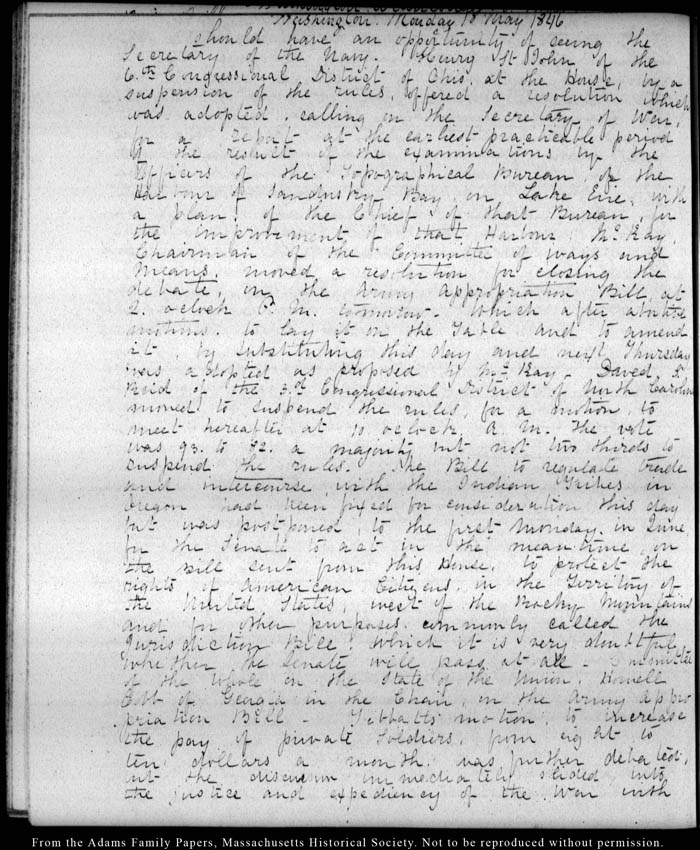 Washington. Monday 18 May 1846
should have an opportunity of seeing the
Secretary of the Navy. Henry St John of the
6.th Congressional District of Ohio, at the House, by a
suspension of the rules, offered a resolution which
was adopted, calling on the Secretary of War,
for a report at the earliest practicable period
of the result of the examinations by the
Officers of the Topographical Bureau, of the
Harbour of Sandusky Bay, on Lake Erie, with
a plan, of the Chief of that Bureau, for
the improvement of that Harbour. McKay,
Chairman of the Committee of ways and
Means, moved a resolution for closing the
debate, on the Army appropriation Bill, at
2. oclock P. M. tomorrow. Which after abortive
motions, to lay it on the Table and to amend
it by substituting this day and next Thursday
was adopted as proposed by McKay. David S.
Reid of the 3.d Congressional District of North Carolina
moved to suspend the rules, for a motion, to
meet hereafter at 10 oclock A. M. The vote
was 93. to 82. a majority but not two thirds to
suspend the rules. The Bill to regulate trade
and intercourse with the Indian Tribes in
Oregon had been fixed for consideration this day
but was postponed, to the first Monday in June
for the Senate to act in the meantime on
the bill sent from this House, to protect the
rights of American Citizens, in the Territory of
the United States, west of the Rocky Mountains
and for other purposes, commonly called the
Jurisdiction Bill. Which it is very doubtful
whether the Senate will pass at all. In committee
of the whole on the State of the Union, Howell
Cobb of Georgia in the Chair, on the Army appro
priation Bill. Tibbatts's motion, to increase
the pay of private Soldiers, from eight to
ten dollars a month was further debated,
but the discussion immediately slided into
the justice and expediency of the War with
From the Adams Family Papers, Massachusetts Historical Society. Not to be reproduced without permission.